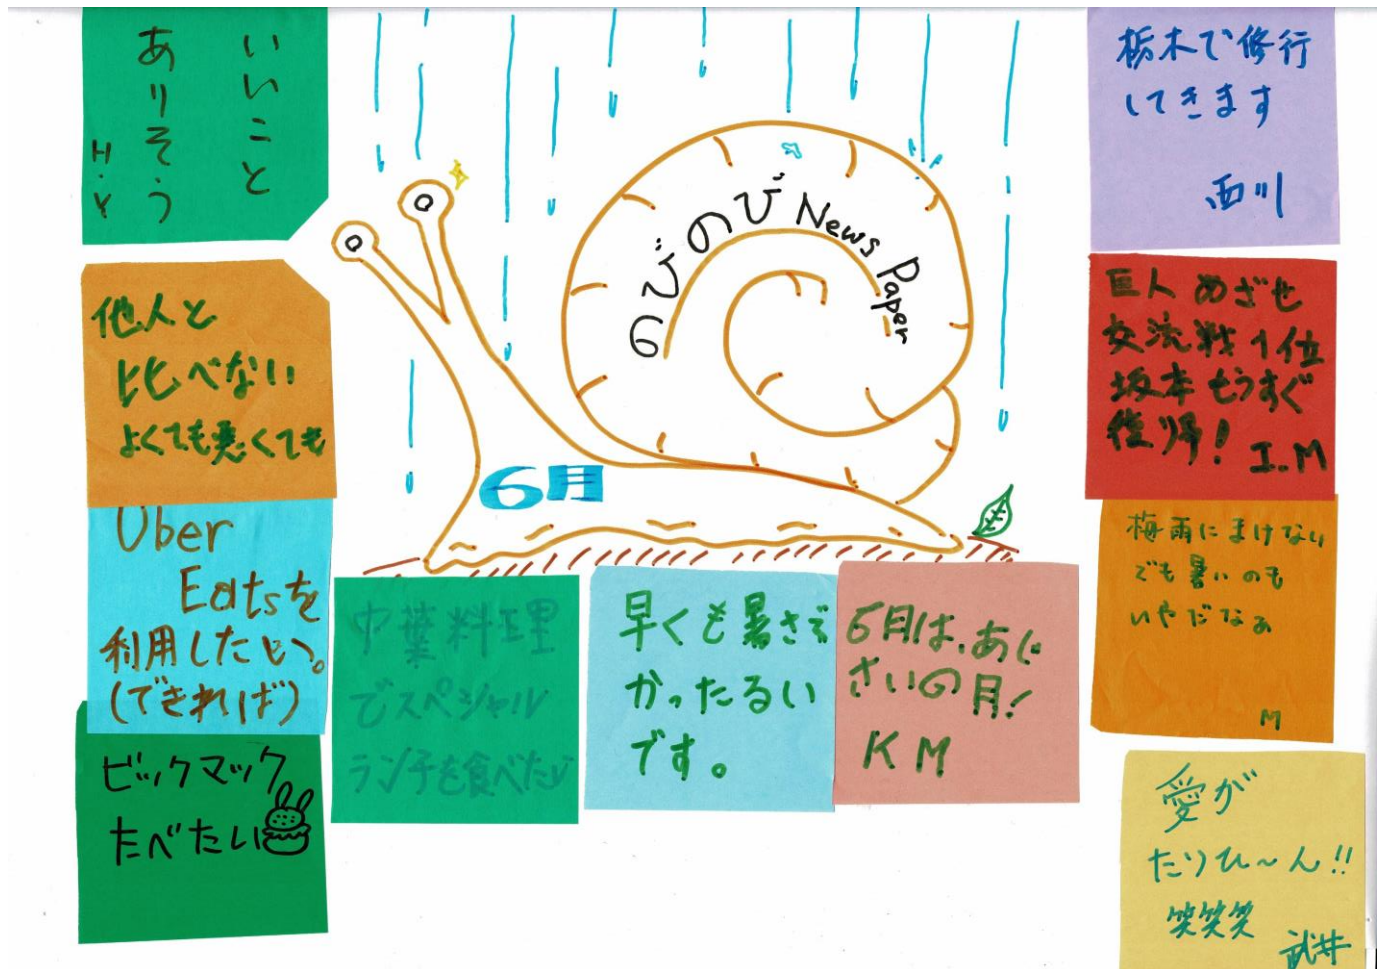 いいこと
ありそう
H.Y
のびのび News Paper
6月
栃木で修行
してきます
西川
他人と
比べない
よくても悪くても
巨人 めざせ
交流戦1位
坂本もうすぐ
復帰！
I.M
Uber
Eatsを
利用したい。
(できれば)
梅雨にまけない
でも暑いのも
いやだなぁ
M
ビックマック
たべたい
中華料理
でスペシャル
ランチを食べたい
早くも暑さで
かったるい
です。
6月は、あじ
さいの月！
KM
愛が
たりひ〜ん!!
笑笑笑
武井